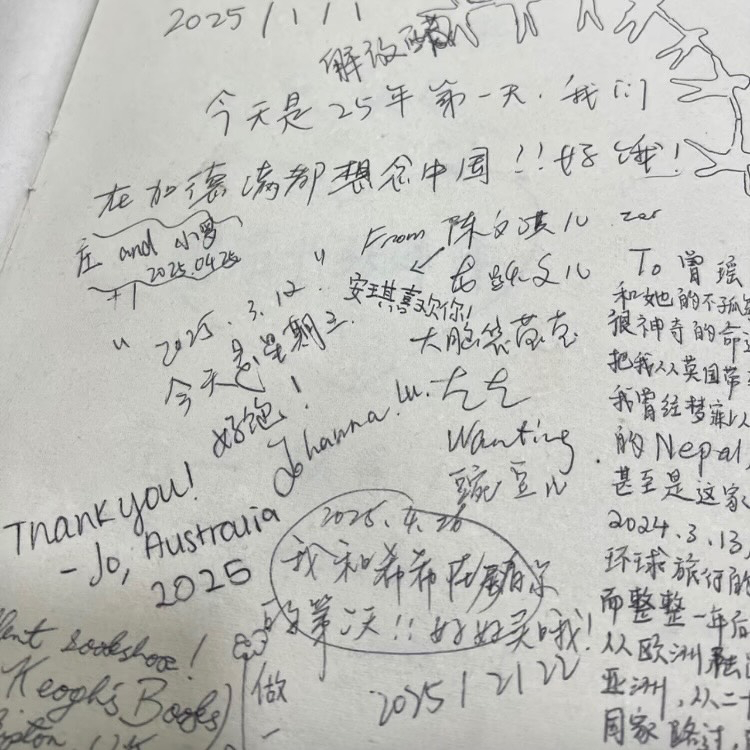 2025/1/1
解放
今天是25年第一天.我们
在加德满都想念中国!!好哦!
庄 and 小罗
2025.04.25
+1
From 陈文淇儿
安琪喜欢你!
大脑袋
左左
Wanting
豌豆儿
" 2025.3.12 "
今天是星期三.
好饱!
Johanna.Lu.
Thank you!
- Jo, Australia
2025
2025.4.26
我和希希在
的第 天!!好好哭哦!
2025/2/22
做
一
bookshop!
Keogh's Books
To 曾瑶
和她的不孤
很神奇的命运
把我从英国带
我曾经梦寐以
的Nepal
甚至是这家
2024.3.13
环球旅行的
而整整一年后
从欧洲
亚洲,从二十
国家路过